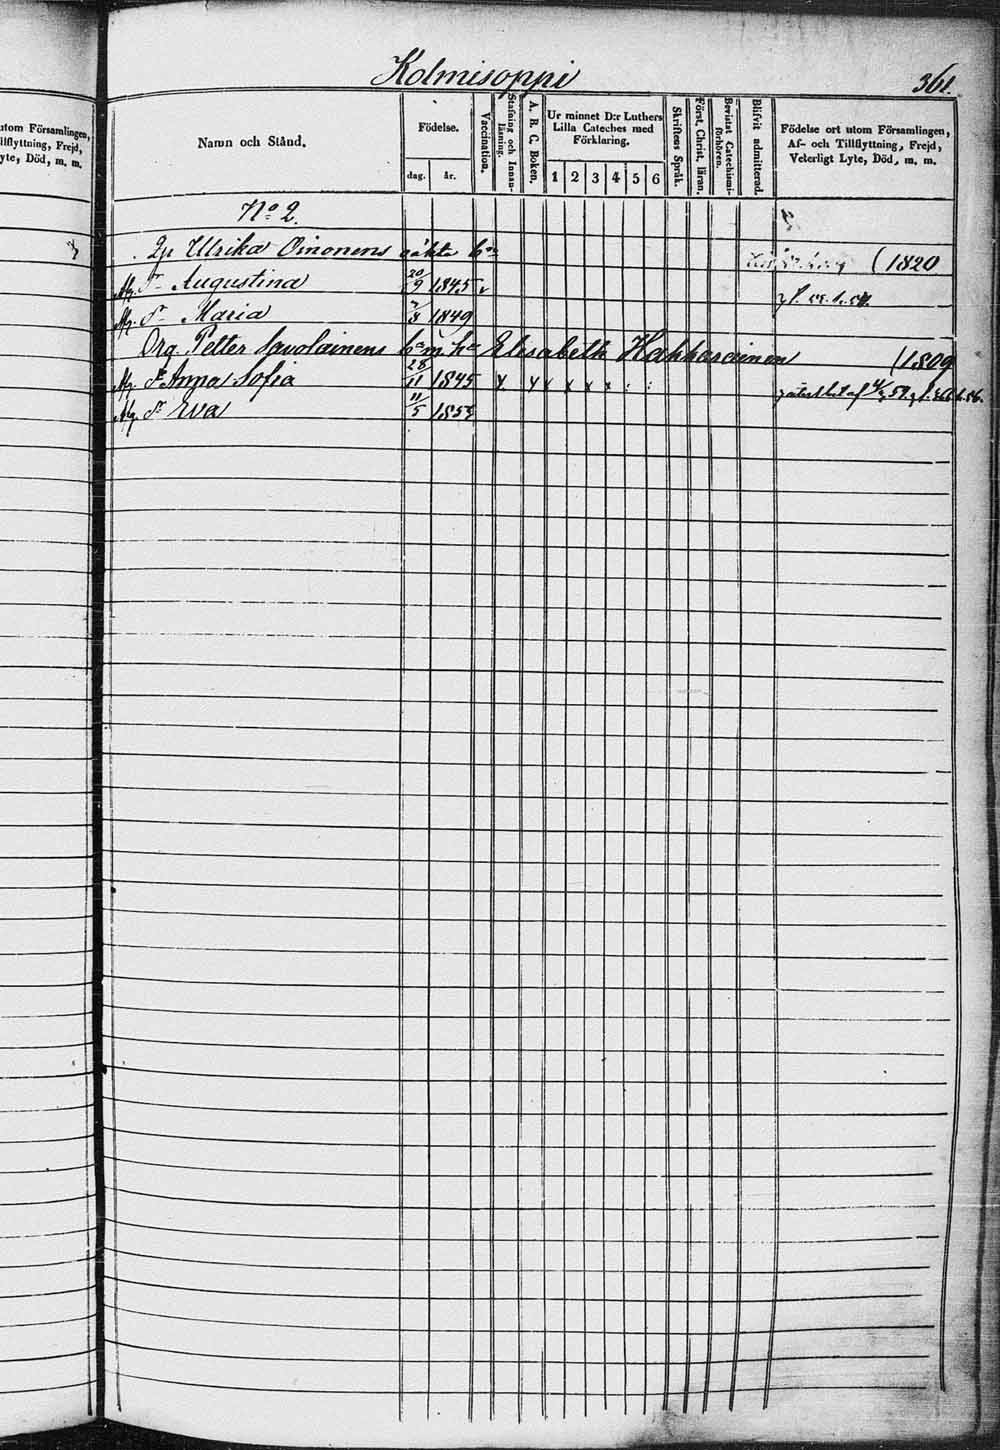 Kolmisoppi
361.
utom Församlingen,
illflyttning, Frejd,
yte, Död, m. m.
Namn och Stånd.
Födelse.
dag.
år.
Vaccination.
Stafning och Innan-
läsning.
A. B. C. Boken.
Ur minnet D:r Luthers
Lilla Cateches med
Förklaring.
1 2 3 4 5 6
Skriftens Språk.
Först. Christ. läran.
Bevistat Catechismi-
förhören.
Blifvit admitterad.
Födelse ort utom Församlingen,
Af- och Tillflyttning, Frejd,
Veterligt Lyte, Död, m. m.
No 2.
Ulrika Oinonens oäkta bn (1820
Augustina 20/9 1845
Maria 1849
Petter Savolainens bn m. ha Elisabeth Hakkarainen (1809
Anna Sofia 28/11 1845 x x x x x x
Eva 11/5 1853